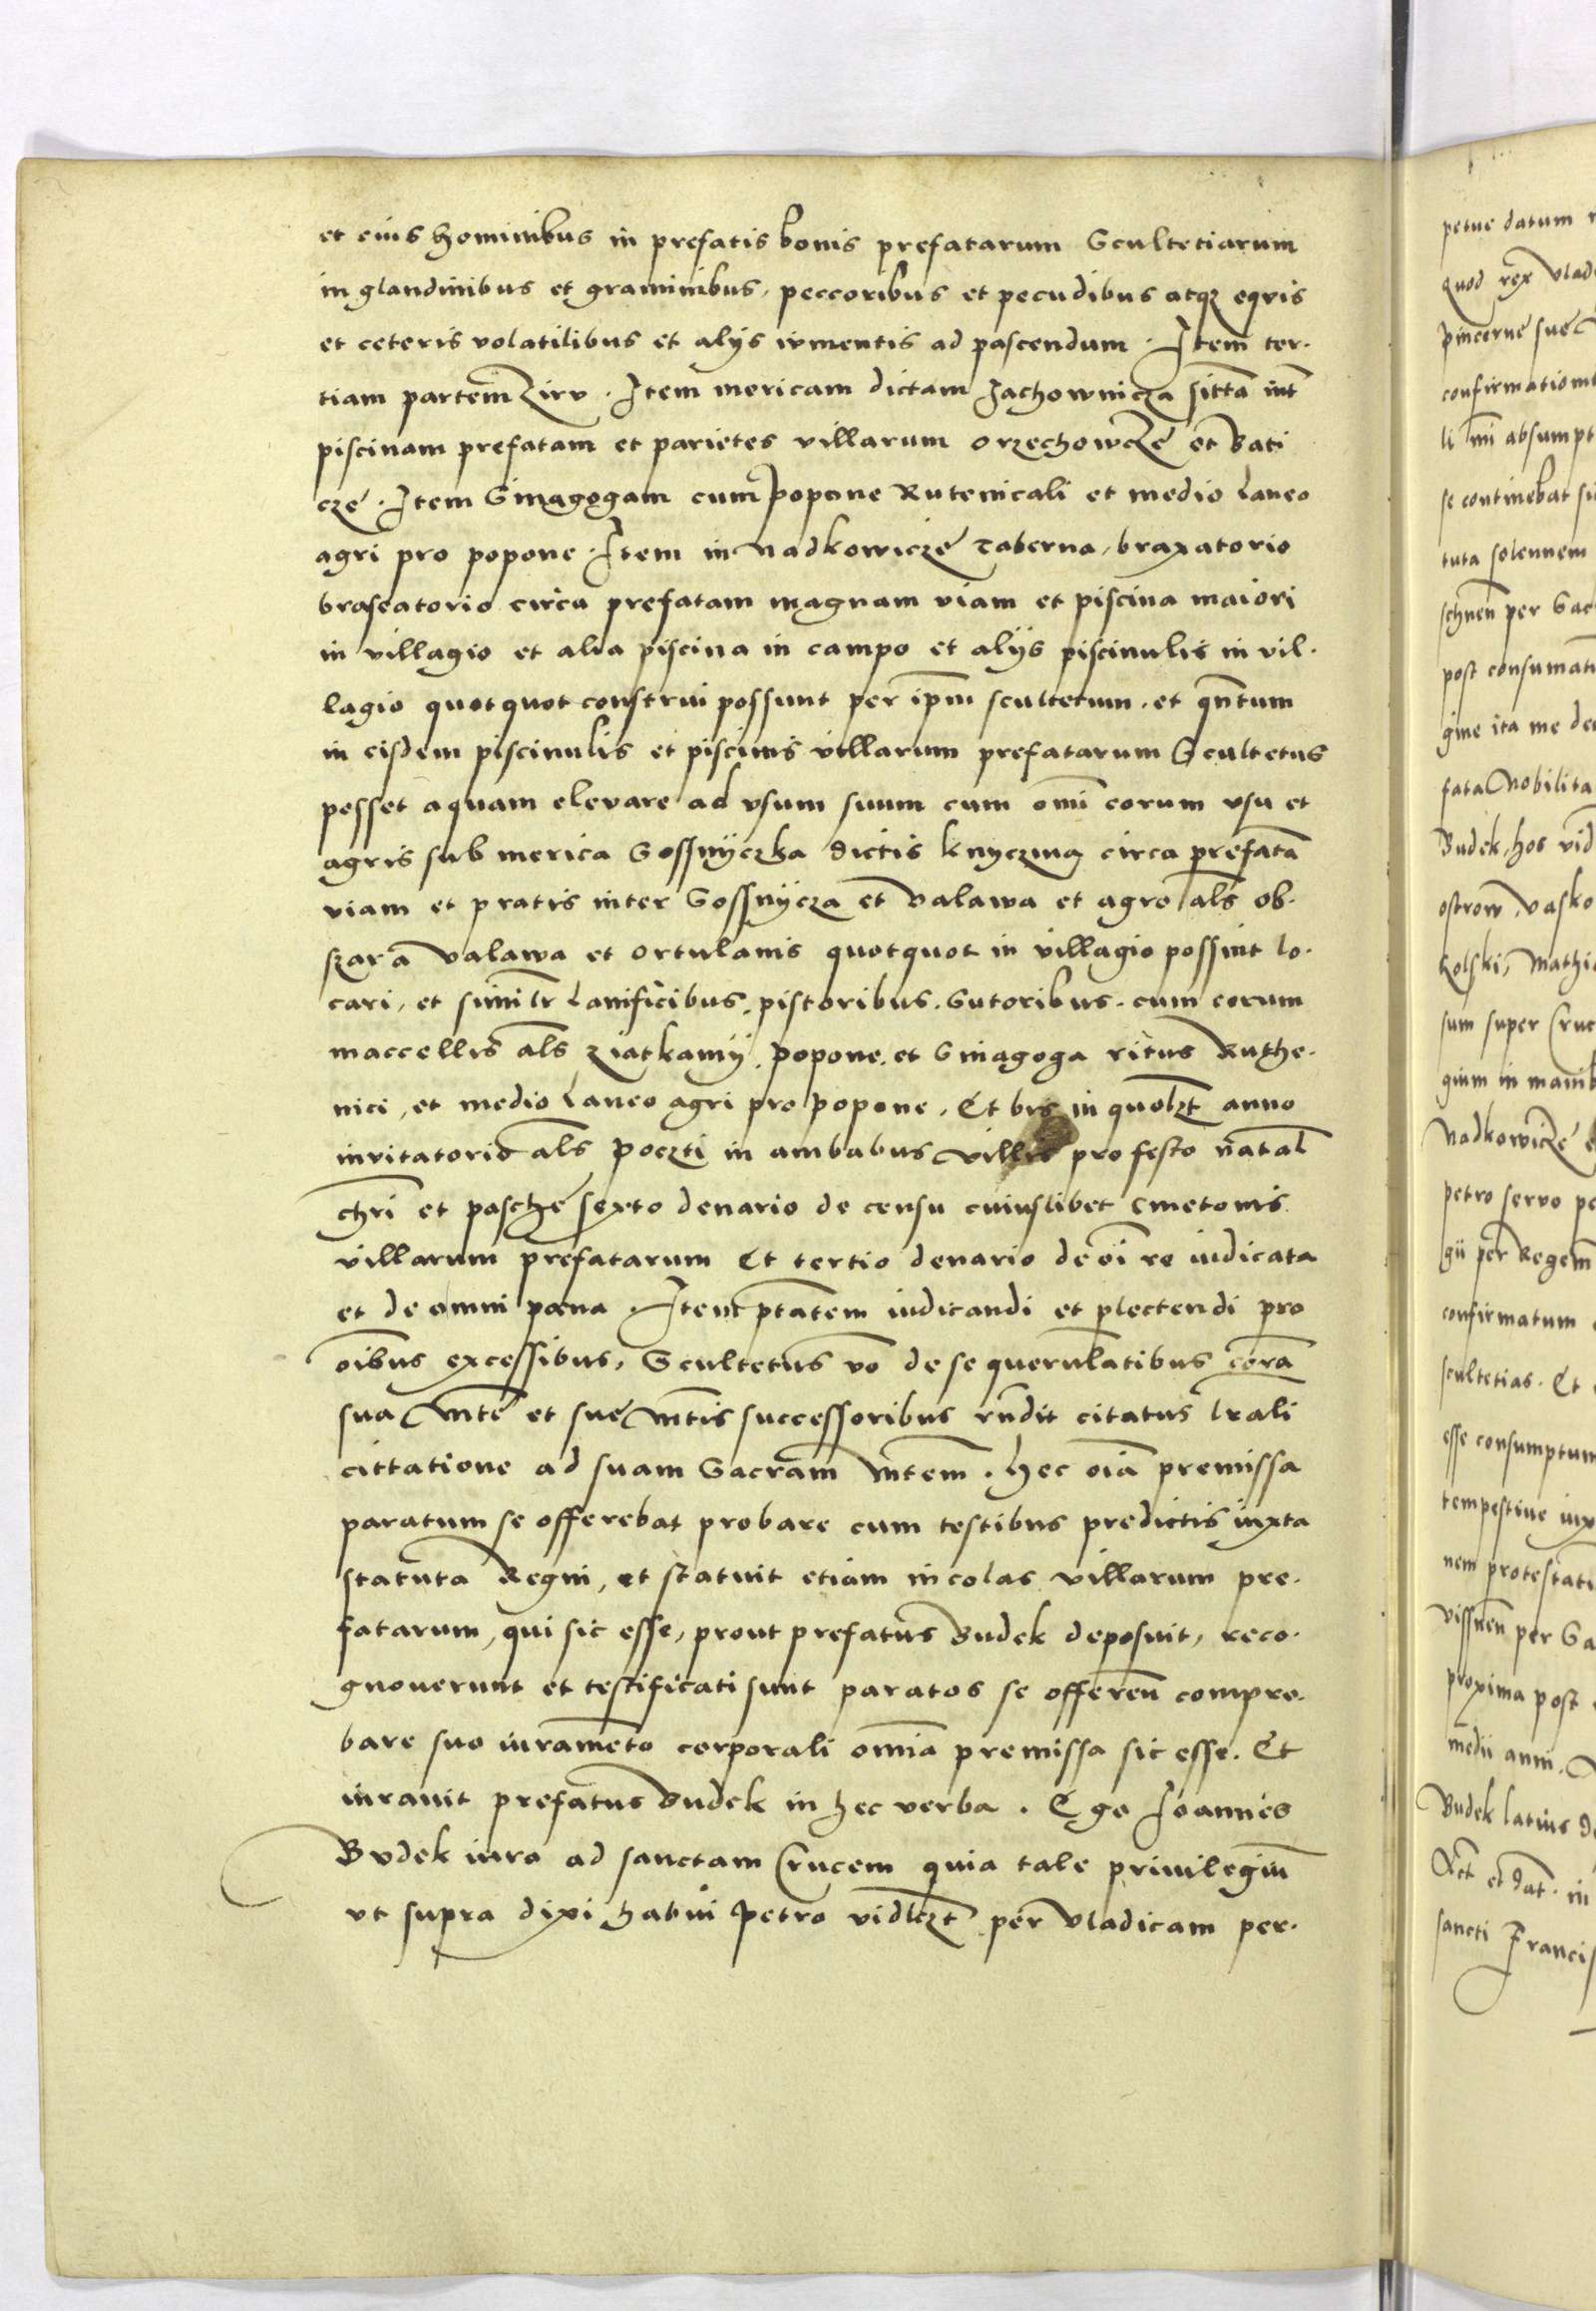 et eius hominibus in prefatis bonis prefatarum Scultetiarum
in glandinibus et graminibus, peccoribus et pecudibus atqz eqvis
et ceteris volatilibus et alÿs iumentis ad pascendum. Item ter-
tiam partem Zirv. Item mericam dictam Jachownicza sittā int
piscinam prefatam et parietes villarum Orzechowcze et Bati
cze. Item Sinagogam cum popone Rutenicali et medio Laneo
agri pro popone. Item in Nadkowicze Taberna, braxatorio
braseatorio circa prefatam magnam viam et piscina maiori
in villagio et alia piscina in campo et alÿs piscinulis in vil-
lagio quotquot construi possunt per ipm scultetum. et qntum
in eisdem piscinulis et piscinis villarum prefatarum Scultetus
posset aquam elevare ad vsum suum cum omī eorum vsu et
agris sub merica Gossnÿczka dictis knyczmą circa prefatā
viam et pratis inter Gossnÿcza et Valawa et agro als ob-
szarā Valawa et ortulanis quotquot in villagio possint lo-
cari, et similr Lanificibus, pistoribus. Sutoribus. cum eorum
maccellis als ziatkamÿ. popone. et Sinagoga ritus Ruthe-
nici, et medio Laneo agri pro popone. Et bis in quolzt anno
invitatorio als poczti in ambabus villis pro festo natal
chri et pasche sexto denario de censu cuiuslibet cmetonis
villarum prefatarum Et tertio denario de oī re iudicata
et de omni poena. Item ptatem iudicandi et plectendi pro
oibus excessibus, Scultetus vo de se querulatibus corā
sua Mte et sue Mtis successoribus rndit citatus lrali
cittatione ad suam Sacram Mtem. Hec oia premissa
paratum se offerebat probare cum testibus predictis iuxta
statuta Regni, et statuit etiam incolas villarum pre-
fatarum, qui sic esse, prout prefatus Budek deposuit, reco-
gnoverunt et testificati sunt paratos se offeren compro-
bare suo iuramēto corporali omia premissa sic esse. Et
iuravit prefatus Budek in hec verba. Ego Joannes
Budek iuro ad sanctam Crucem quia tale privilegiū
vt supra dixi habui Petro vidlczt per Vladicam per-
petue datum
quod rex Vlad
pincerne sue
confirmation
li mi absumpt
se continebat
tuta solennem
schnen per Sac
post consumati
gine ita me de
fata Nobilita
Budek, hos vid
ostrow, Vasko
kolski, Mathi
sum super Cruc
gium in manib
Nadkowicze
petro servo pe
gii per Regem
confirmatum
scultetias. Et
esse consumptum
tempestive iux
nem protestati
vissnen per Sa
proxima post
medii anni.
Budek latius d
Act et dat. in
sancti Francis